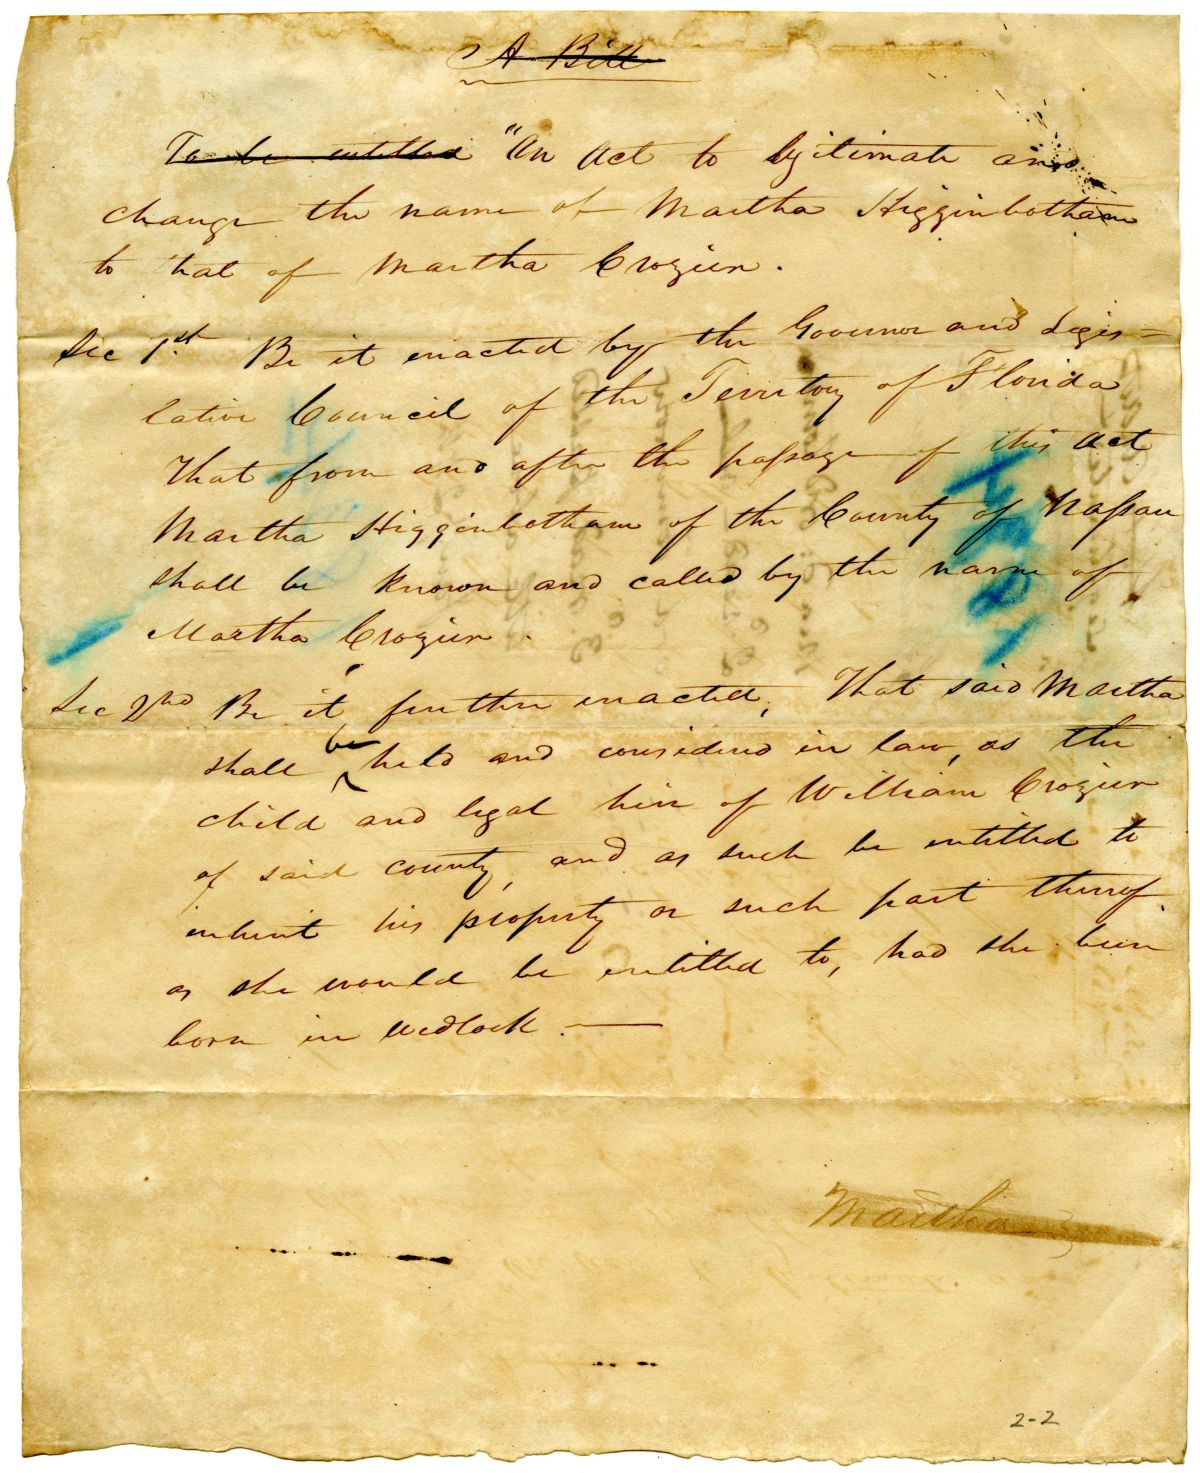 A Bill
To be entitled "An Act to legitimate and
change the name of Martha Higginbotham
to that of Martha Crozier.
Sec 1st. Be it enacted by the Governor and Legis=
lative Council of the Territory of Florida
That from and after the passage of this Act
Martha Higginbotham of the County of Nassau
shall be known and called by the name of
Martha Crozier.
Sec 2nd Be it further enacted, That said Martha
shall be held and considered in law, as the
child and legal heir of William Crozier
of said county, and as such be entitled to
inherit his property or such part thereof
as she would be entitled to, had she been
born in wedlock. —
Martha
2-2